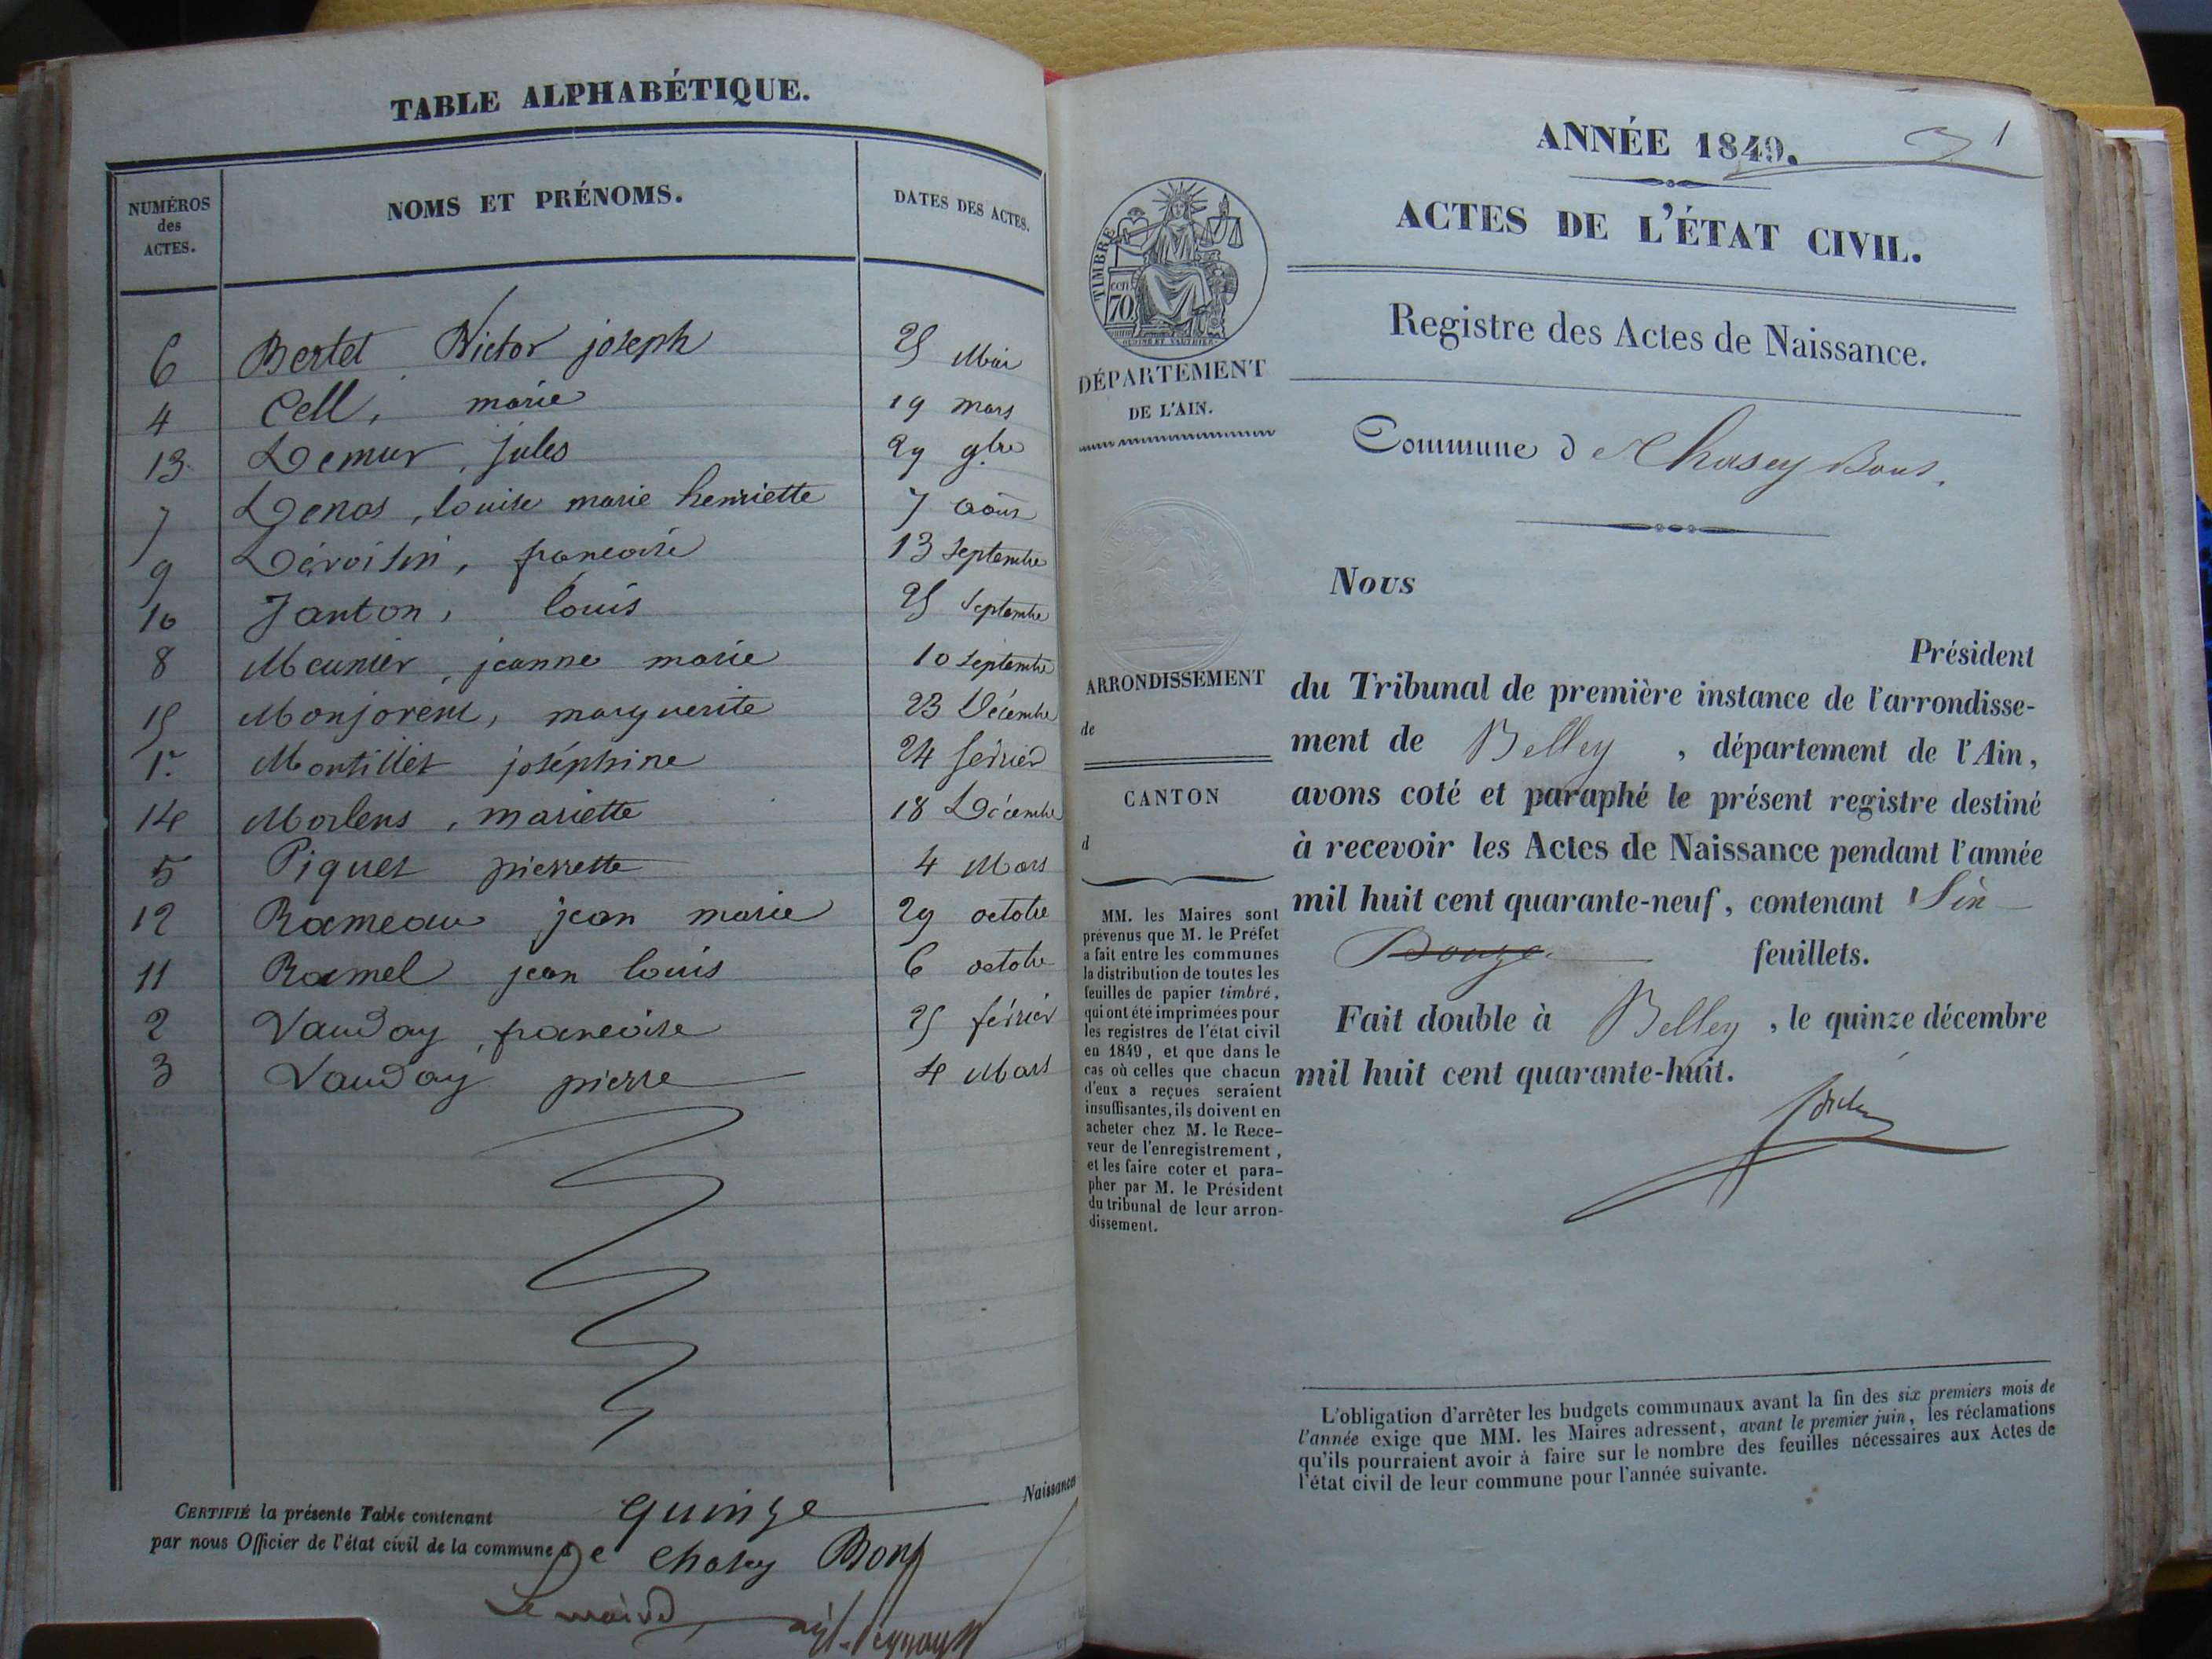 TABLE ALPHABÉTIQUE.
NUMÉROS des ACTES. NOMS ET PRÉNOMS. DATES DES ACTES.
6 Bertet Victor joseph 25 Mai
4 Cell, marie 19 mars
13 Demur, jules 29 9bre
7 Denos, louise marie henriette 7 août
9 Dévoisin, francoise 13 Septembre
10 Janton, louis 25 Septembre
8 Meunier, jeanne marie 10 Septembre
15 Monjorent, marguerite 23 Décembre
1r Montillet joséphine 24 février
14 Morlens, mariette 18 Décembre
5 Piquet pierrette 4 Mars
12 Rameau jean marie 29 octobre
11 Ramel jean louis 6 octobre
2 Vauday, francoise 25 février
3 Vauday pierre 4 Mars
CERTIFIÉ la présente Table contenant quinze Naissances
par nous Officier de l'état civil de la commune de Chasey Bons
Le maire
1
ANNÉE 1849.
ACTES DE L'ÉTAT CIVIL.
Registre des Actes de Naissance.
Commune de Chasey Bons.
TIMBRE
70 cent
DÉPARTEMENT
DE L'AIN.
ARRONDISSEMENT
de
CANTON
d
MM. les Maires sont
prévenus que M. le Préfet
a fait entre les communes
la distribution de toutes les
feuilles de papier timbré,
qui ont été imprimées pour
les registres de l'état civil
en 1849, et que dans le
cas où celles que chacun
d'eux a reçues seraient
insuffisantes, ils doivent en
acheter chez M. le Rece-
veur de l'enregistrement,
et les faire coter et para-
pher par M. le Président
du tribunal de leur arron-
dissement.
Nous
Président
du Tribunal de première instance de l'arrondisse-
ment de Belley, département de l'Ain,
avons coté et paraphé le présent registre destiné
à recevoir les Actes de Naissance pendant l'année
mil huit cent quarante-neuf, contenant Six
Douze feuillets.
Fait double à Belley, le quinze décembre
mil huit cent quarante-huit.
L'obligation d'arrêter les budgets communaux avant la fin des six premiers mois de
l'année exige que MM. les Maires adressent, avant le premier juin, les réclamations
qu'ils pourraient avoir à faire sur le nombre des feuilles nécessaires aux Actes de
l'état civil de leur commune pour l'année suivante.